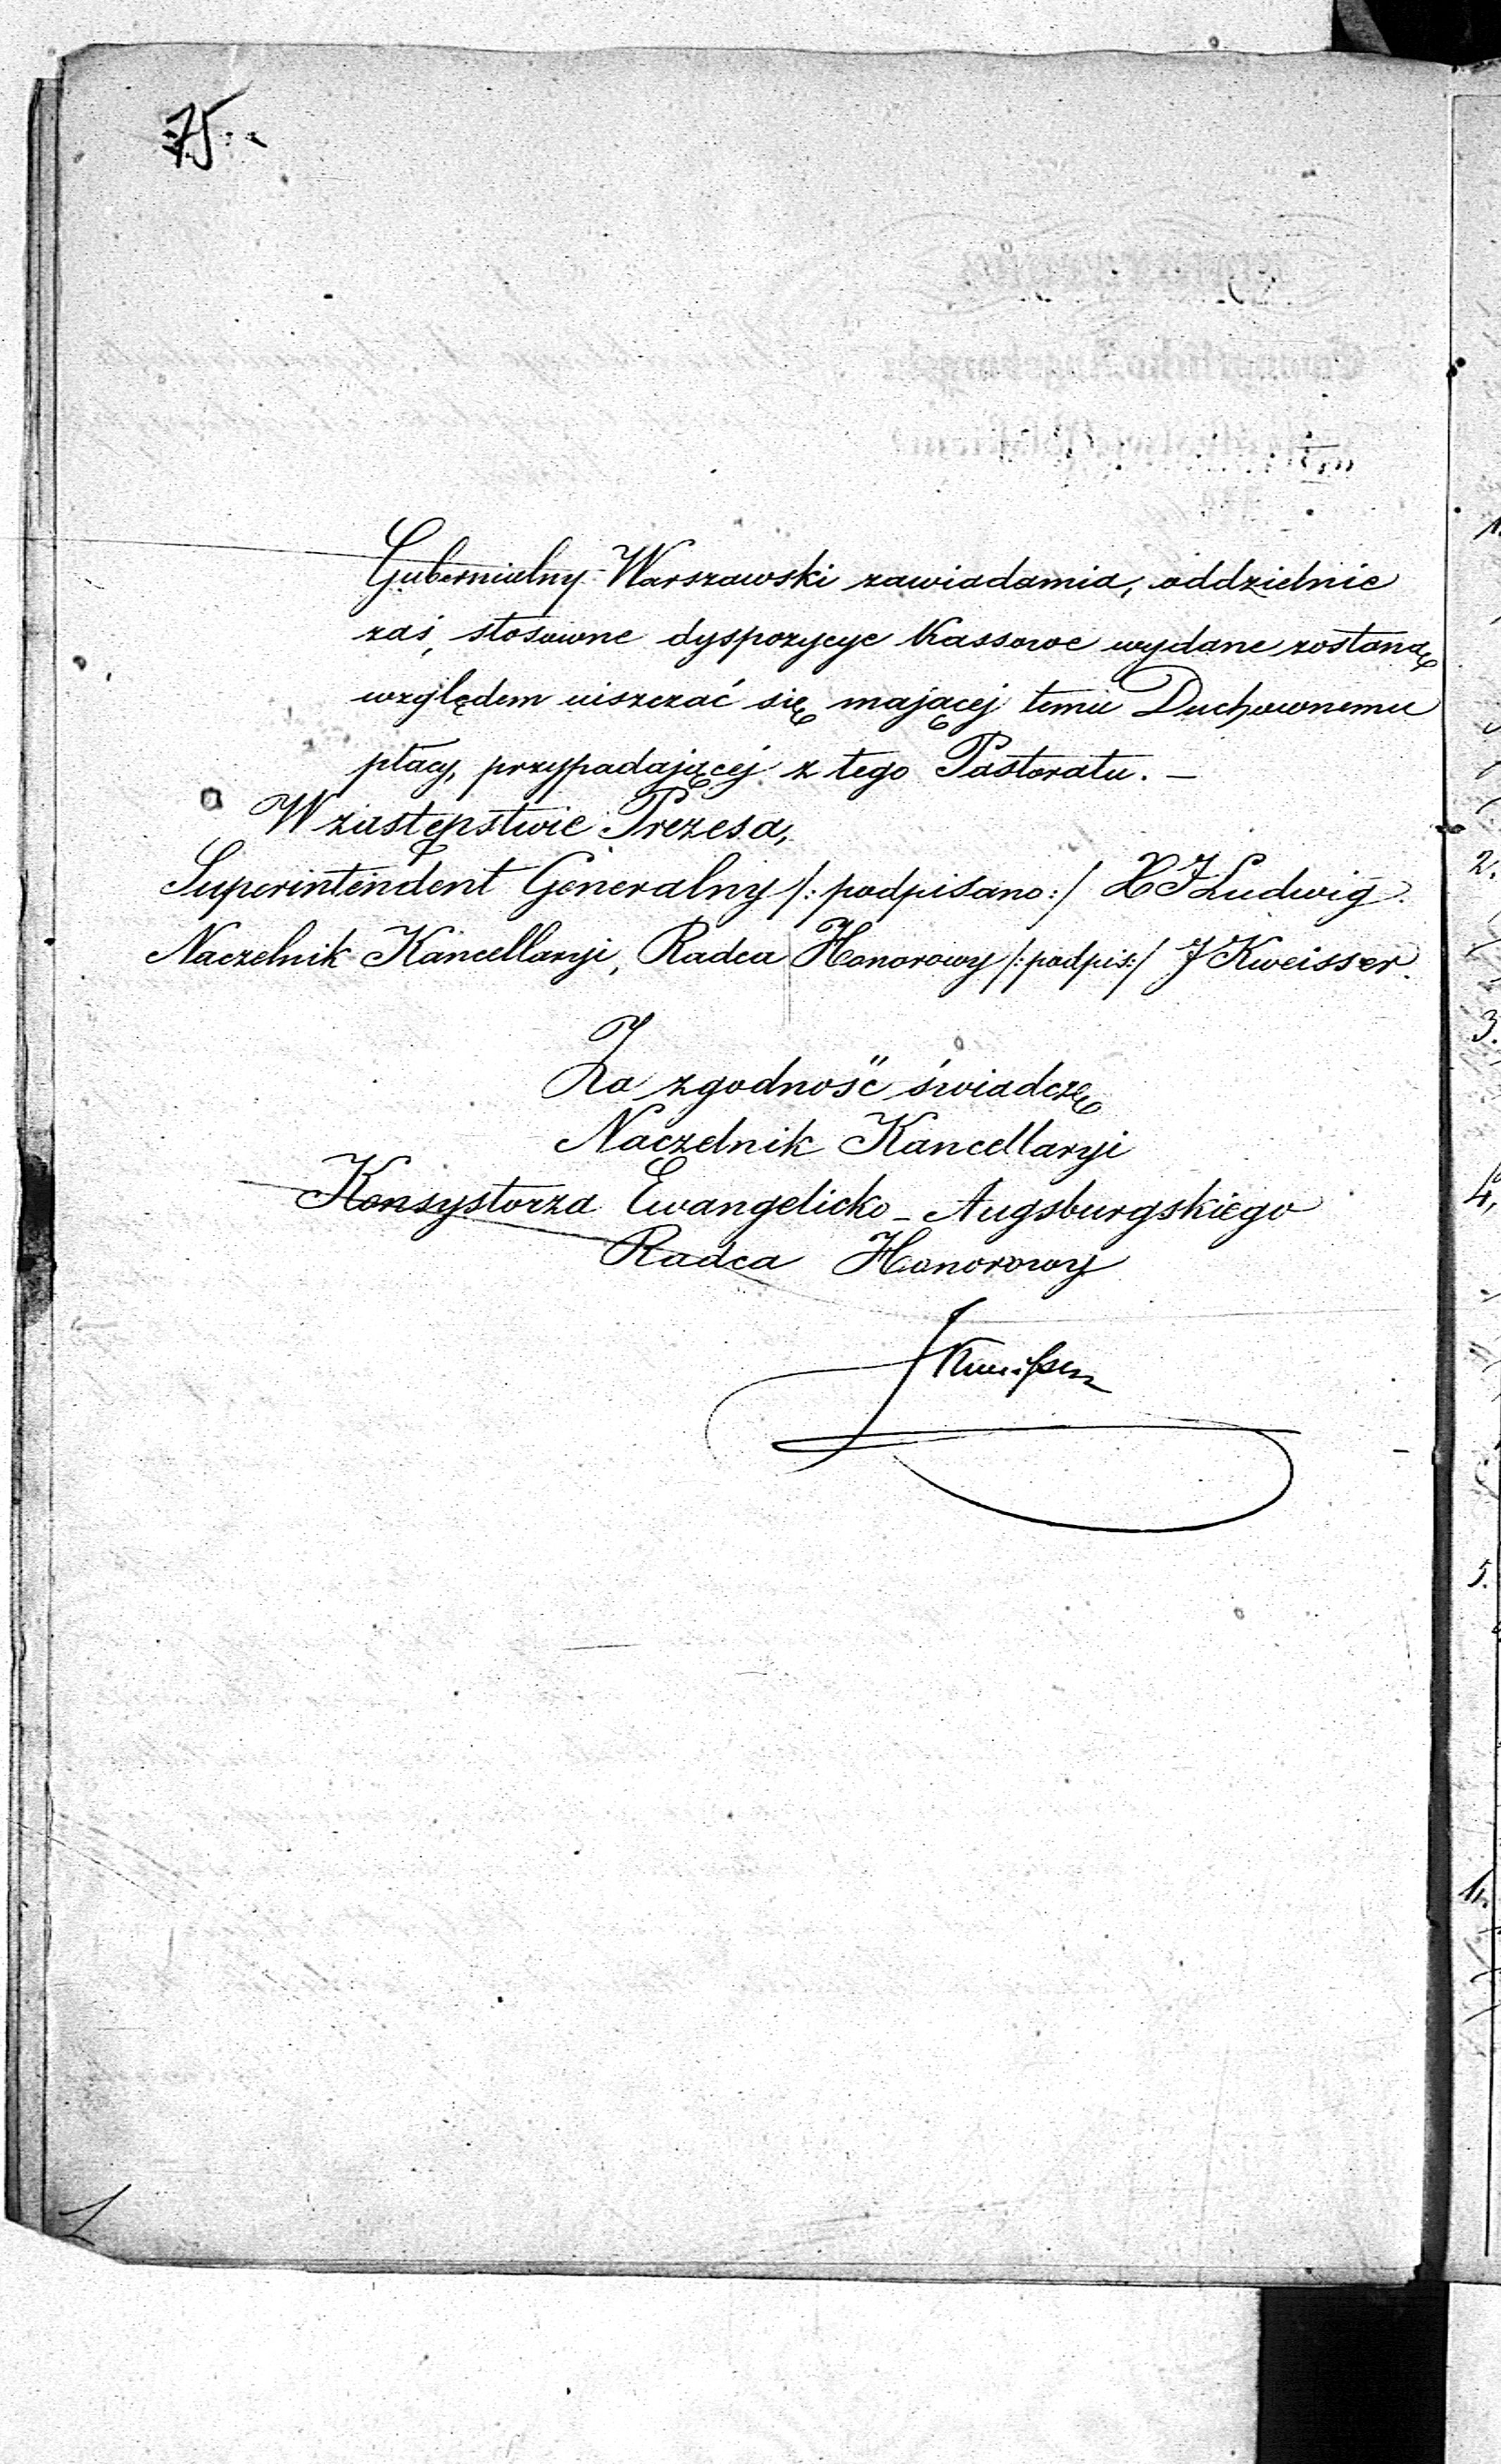 75.
Gubernialny Warszawski zawiadamia, oddzielnie
zaś, stosowne dyspozycye Kassowe wydane zostaną
względem uiszczać się mającej temu Duchownemu
płacy, przypadającej z tego Pastoratu. —
W zastępstwie Prezesa,
Superintendent Generalny /: podpisano :/ X J Ludwig.
Naczelnik Kancellaryi, Radca Honorowy /: podpis :/ J Kweisser.
Za zgodność świadczę
Naczelnik Kancellaryi
Konsystorza Ewangelicko - Augsburgskiego
Radca Honorowy
JKweisser